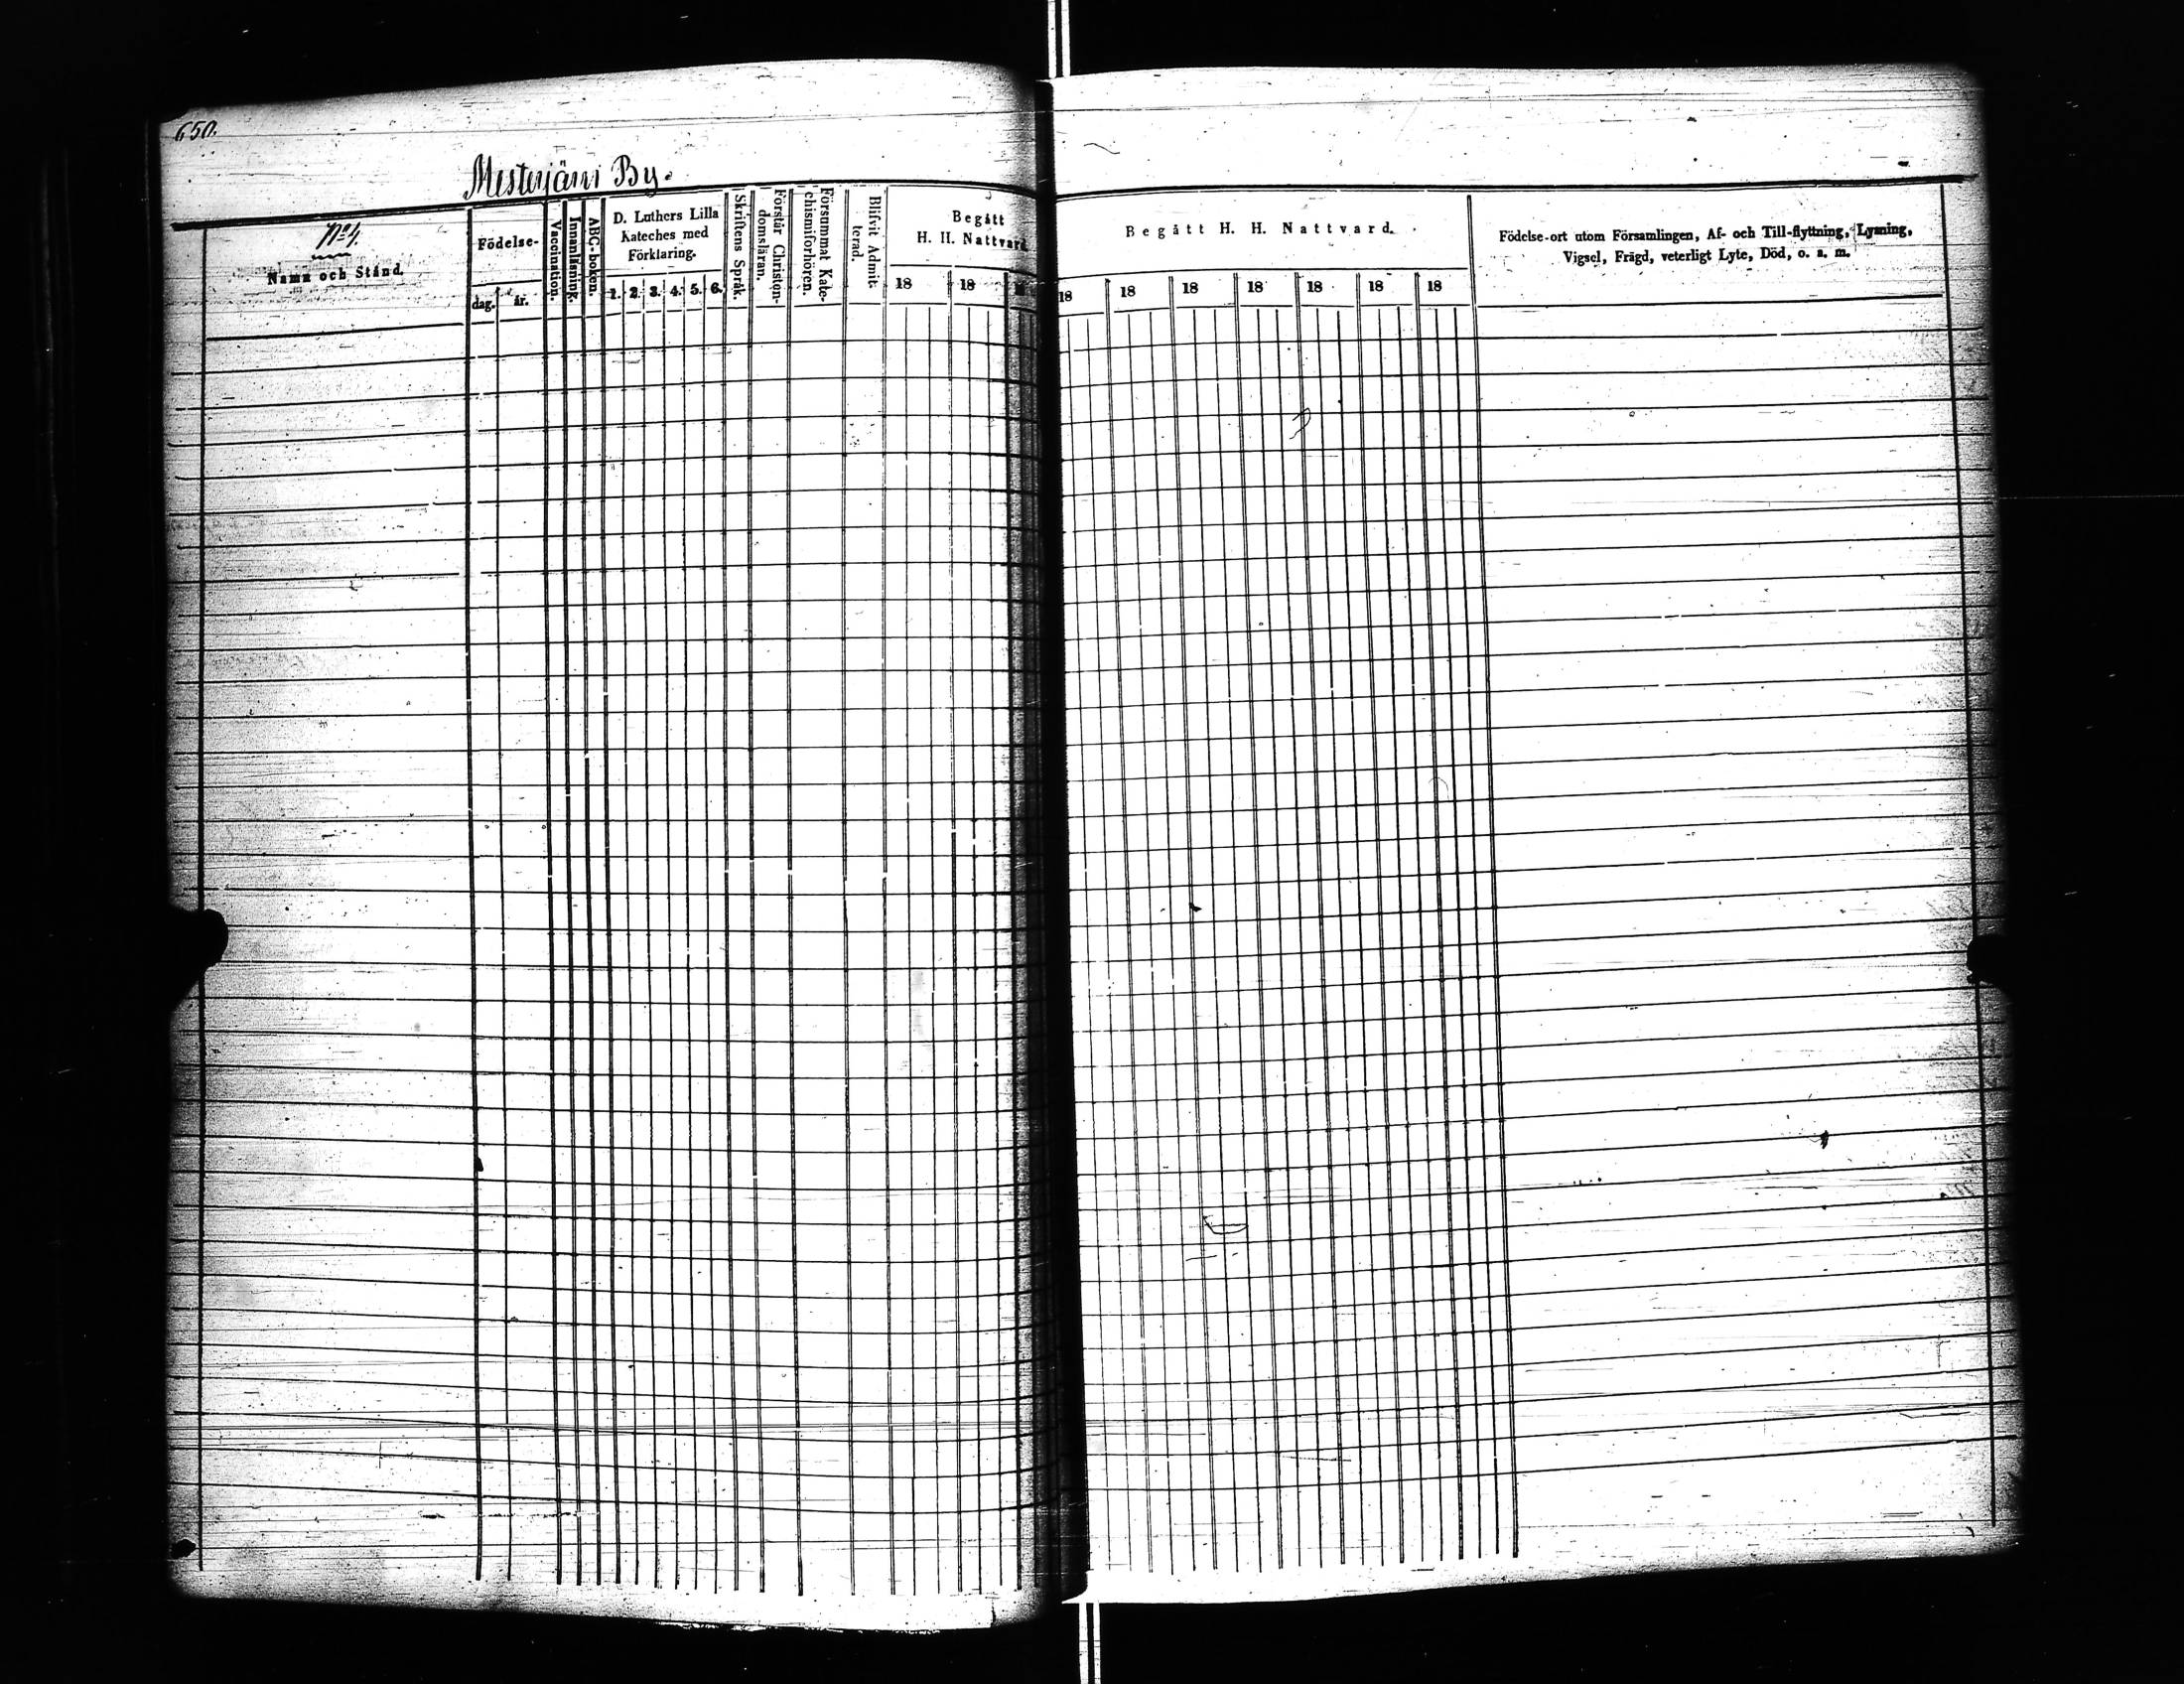 650.
Mesterjärvi By.
No 4.
Namn och Stånd.
Födelse-
dag. år.
Vaccination.
Innanläsning.
ABC-boken.
D. Luthers Lilla
Kateches med
Förklaring.
1. 2. 3. 4. 5. 6.
Skriftens Språk.
Förstår Christen-
domsläran.
Försummat Kate-
chismiförhören.
Blifvit Admit-
terad.
Begått
H. H. Nattvard
18 18 18
Begått H. H. Nattvard.
18 18 18 18 18 18 18
Födelse-ort utom Församlingen, Af- och Till-flyttning, Lysning,
Vigsel, Frägd, veterligt Lyte, Död, o. s. m.